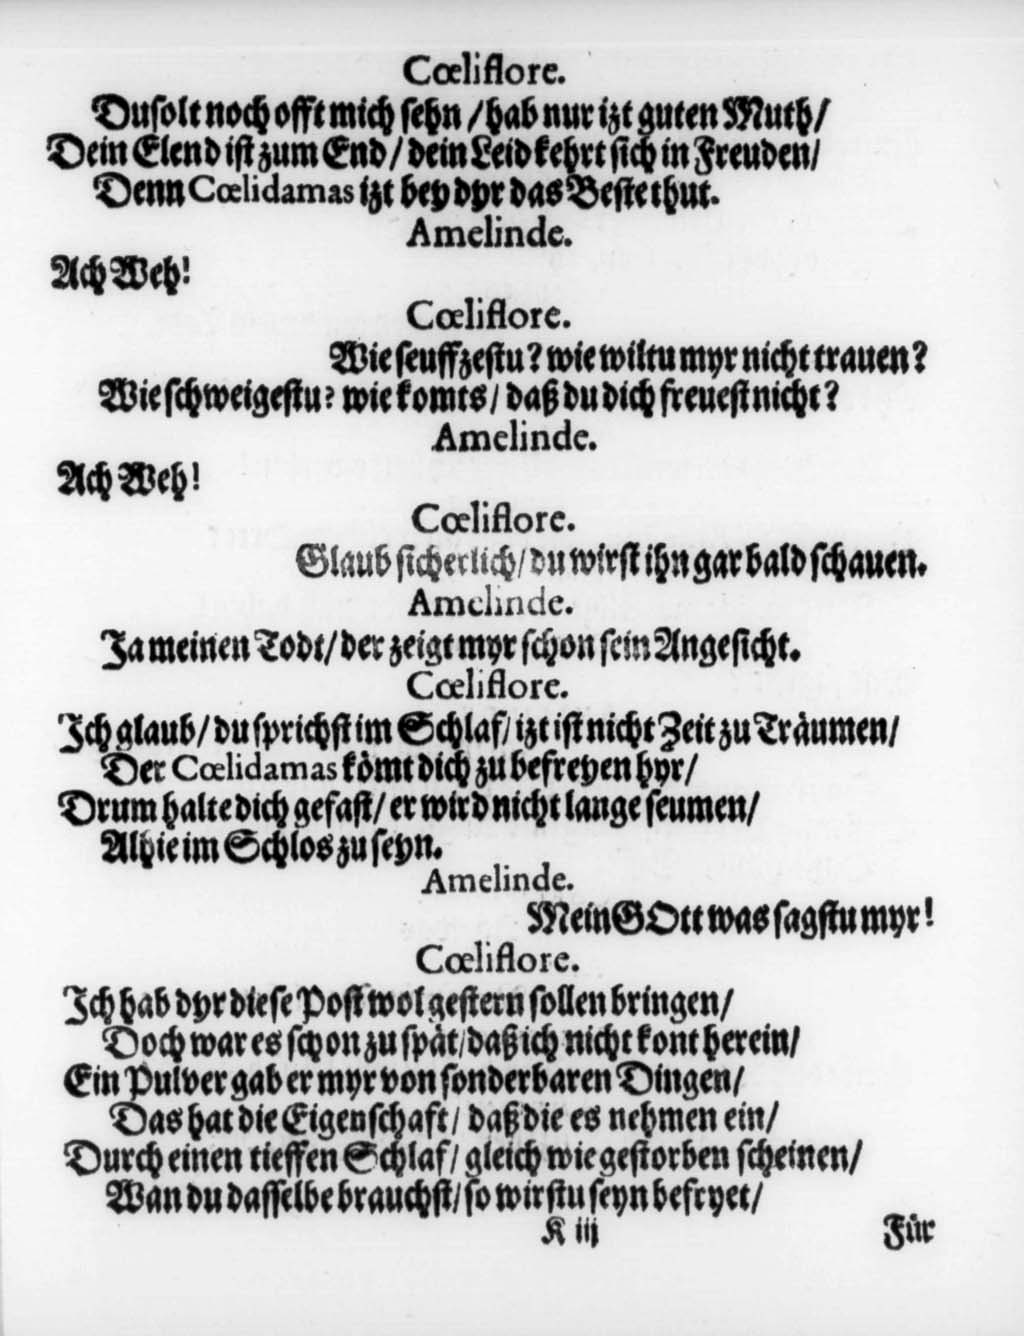 Cœliflore.
Du solt noch offt mich sehn / hab nur izt guten Muth /
Dein Elend ist zum End / dein Leid kehrt sich in Freuden /
Denn Cœlidamas izt bey dyr das Beste thut.
Amelinde.
Ach Weh!
Cœliflore.
Wie seuffzestu? wie wiltu myr nicht trauen?
Wie schweigestu? wie komts / daß du dich freuest nicht?
Amelinde.
Ach Weh!
Cœliflore.
Glaub sicherlich / du wirst ihn gar bald schauen.
Amelinde.
Ja meinen Todt / der zeigt myr schon sein Angesicht.
Cœliflore.
Ich glaub / du sprichst im Schlaf / izt ist nicht Zeit zu Träumen /
Der Cœlidamas kömt dich zu befreyen hyr /
Drum halte dich gefast / er wird nicht lange seumen /
Alhie im Schlos zu seyn.
Amelinde.
Mein GOtt was sagstu myr!
Cœliflore.
Ich hab dyr diese Post wol gestern sollen bringen /
Doch war es schon zu spät / daß ich nicht kont herein /
Ein Pulver gab er myr von sonderbaren Dingen /
Das hat die Eigenschaft / daß die es nehmen ein /
Durch einen tieffen Schlaf / gleich wie gestorben scheinen /
Wan du dasselbe brauchst / so wirstu seyn befryet /
K iij Für